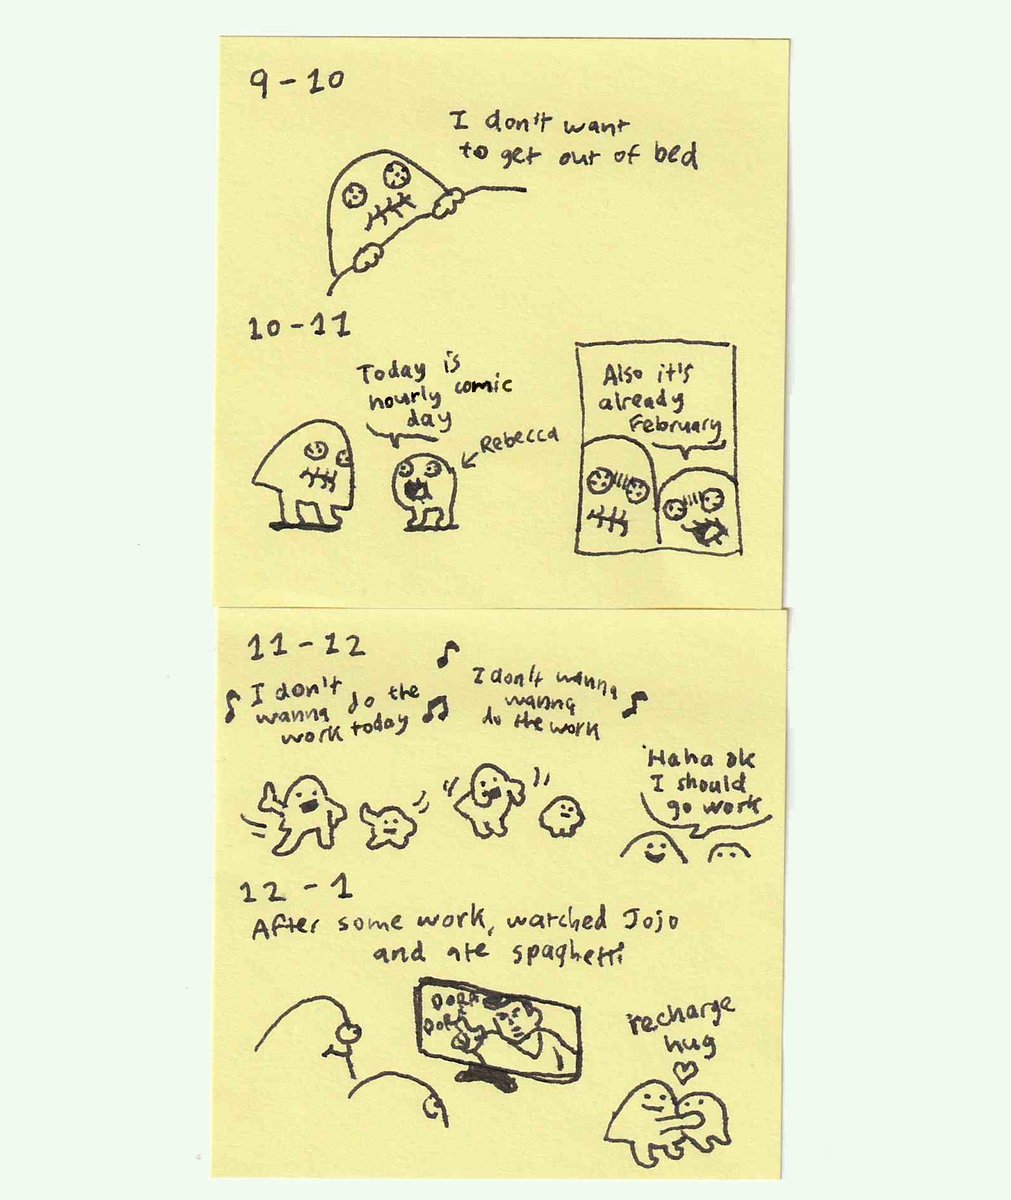 9-10
I don't want
to get out of bed
10-11
Today is
hourly comic
day
Rebecca
Also it's
already
February
11-12
I don't
wanna do the
work today
I don't wanna
wanna
do the work
Haha ok
I should
go work
12-1
After some work, watched Jojo
and ate spaghetti
DORA
recharge
hug